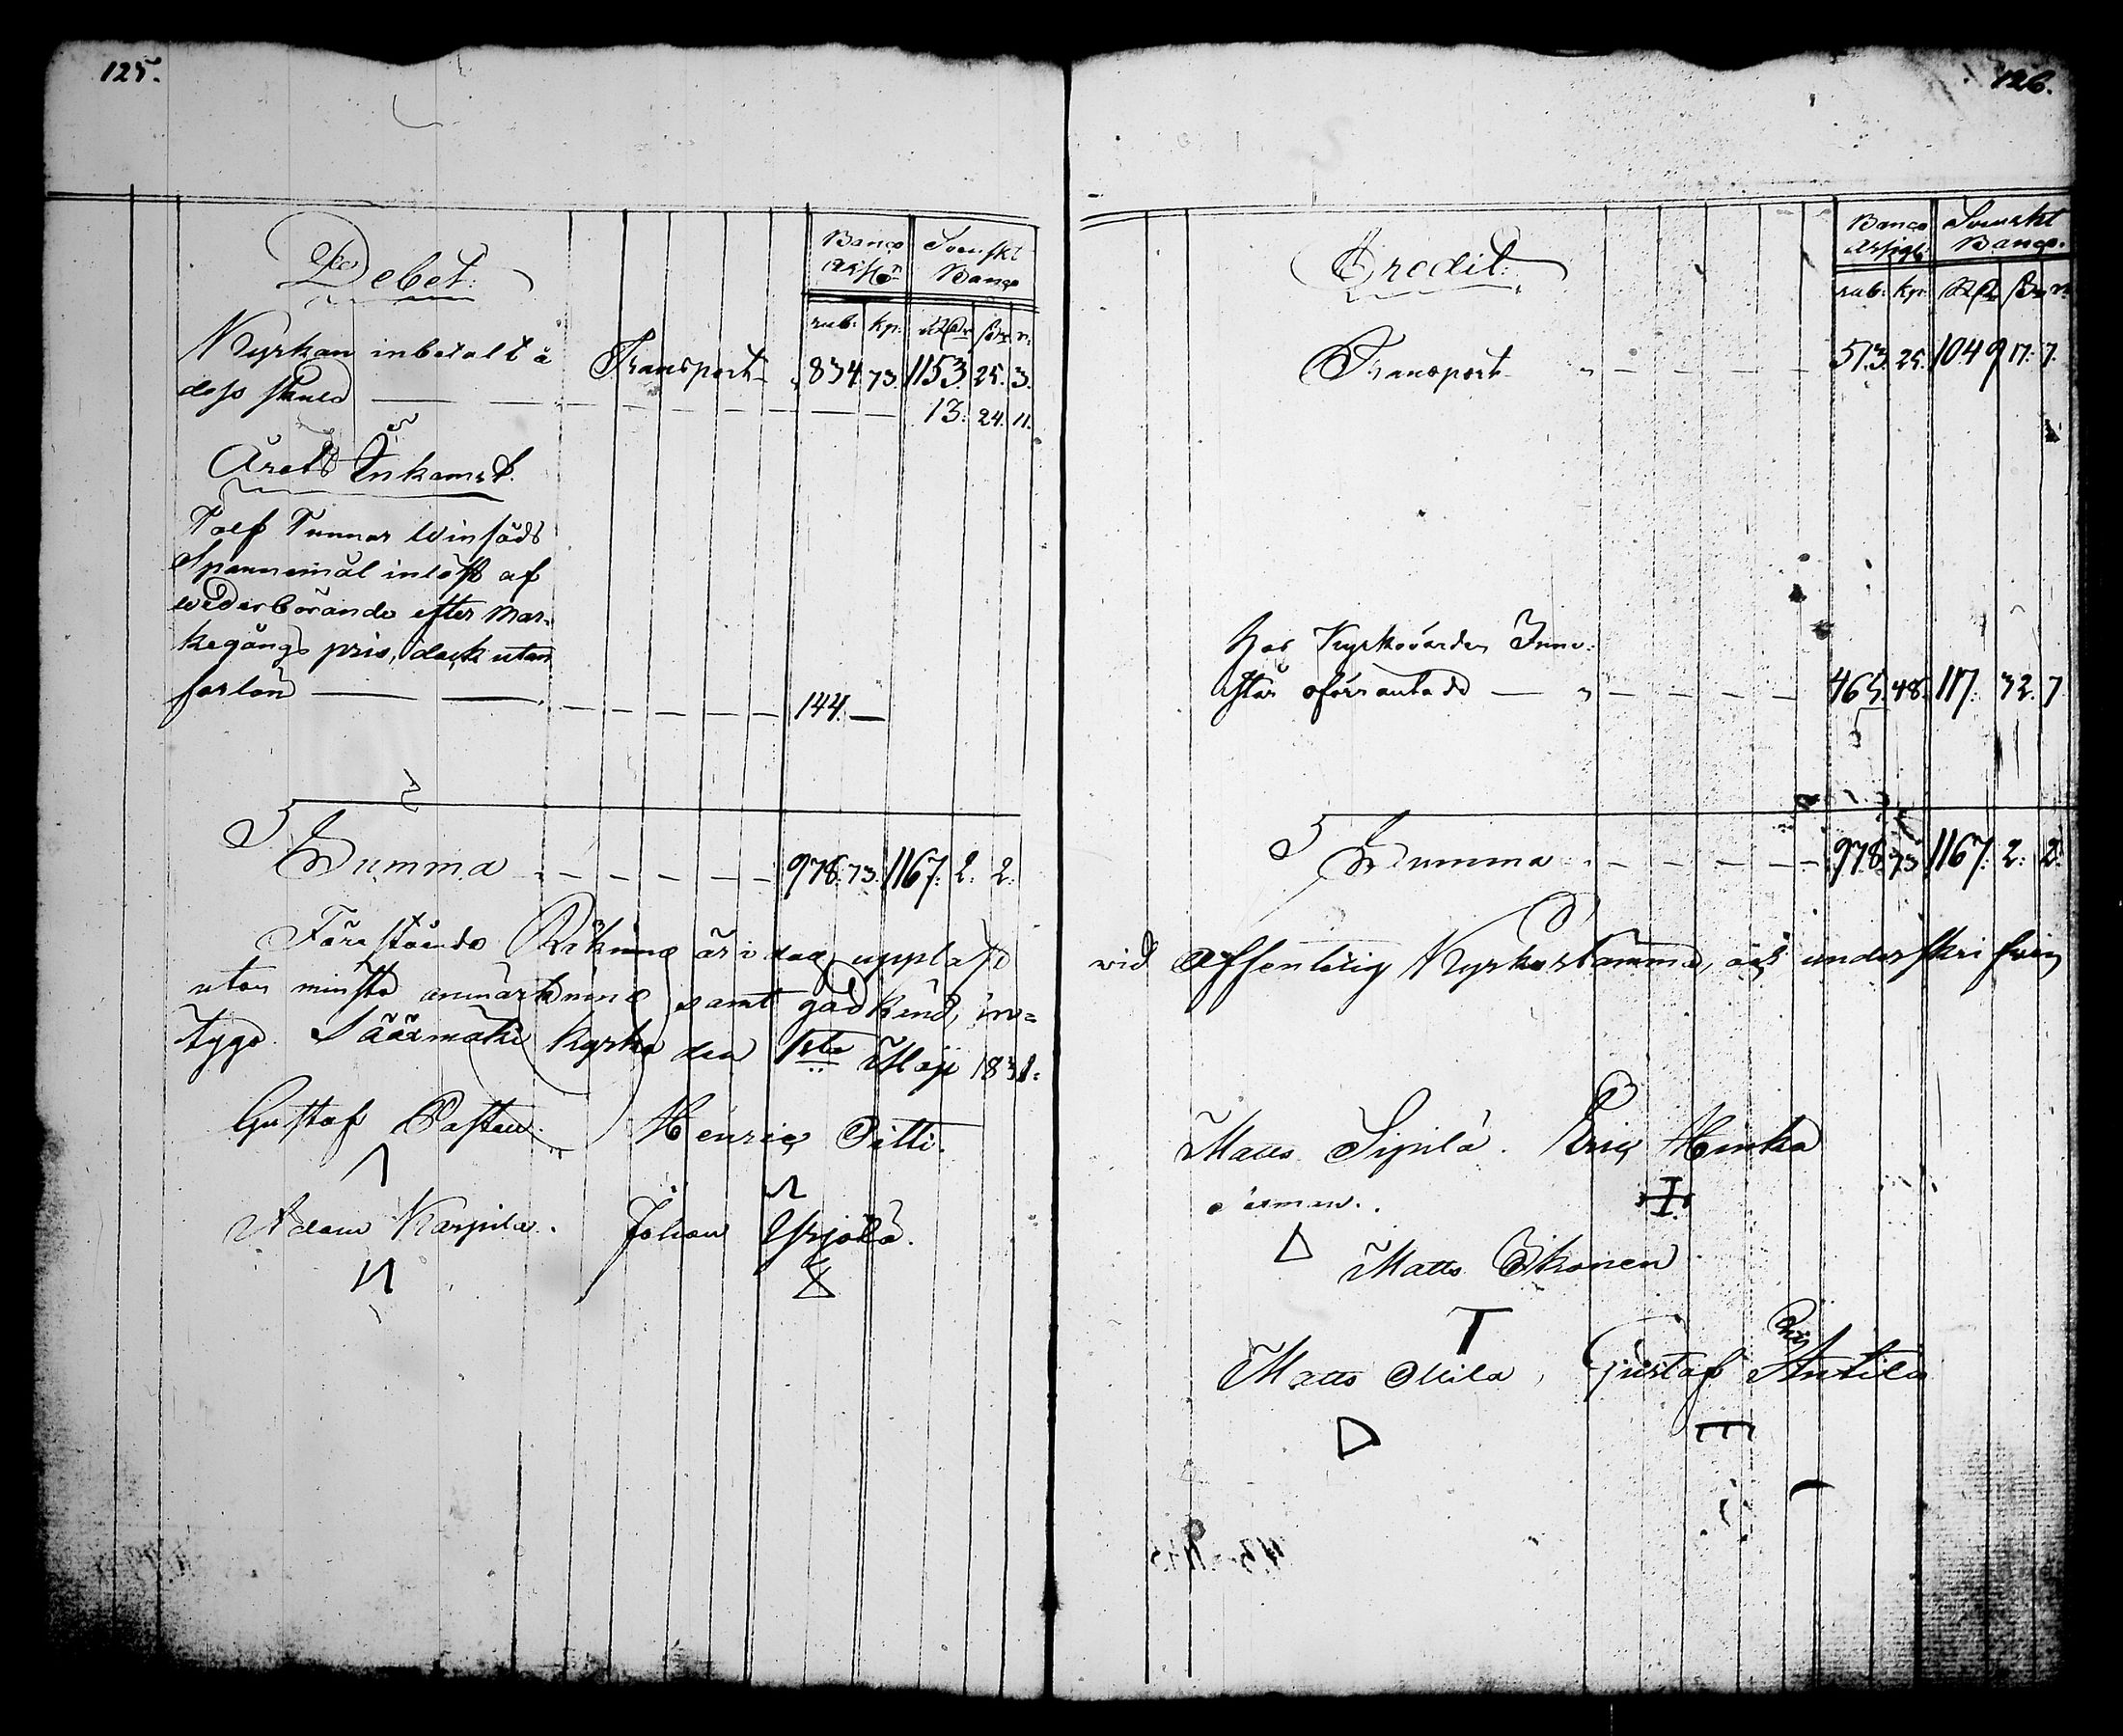 125.
Debet:
Banco
Svenskt
Banco
rub: kp:
Kyrkan inbetalt å Transport 834. 73. 1153. 25. 3.
dess skuld 13. 24. 11.
Årets Inkomst.
Tolf Tunnor
Spannemål inlöst af
wederbörande efter Mar-
kegångs pris, dock utan
forlön 144. —
Summa 978. 73. 1167. 2. 2.
Förestående Räkning är i dag uppläst
utan minsta anmärkning samt godkänd, in-
tyga. Säärmäki Kyrka den 1sta Maji 1831.
Gustaf Henric Pitti.
Adam Karpila. Johan Yrjölä.
126.
Credit:
Banco Svenskt
Assign: Banco.
rub: kp:
Transport 513. 25. 1049 17. 7.
Hos Kyrkovärden Inne-
står oförräntade 465. 48. 117. 32. 7
Summa 978. 73 1167. 2. 2.
wid offentelig Kyrkostämma, och underskrifwin
Matts Sipilä. Eric Heikka
T
Matts Ikonen
T
Matts Mila, Gustaf Antila